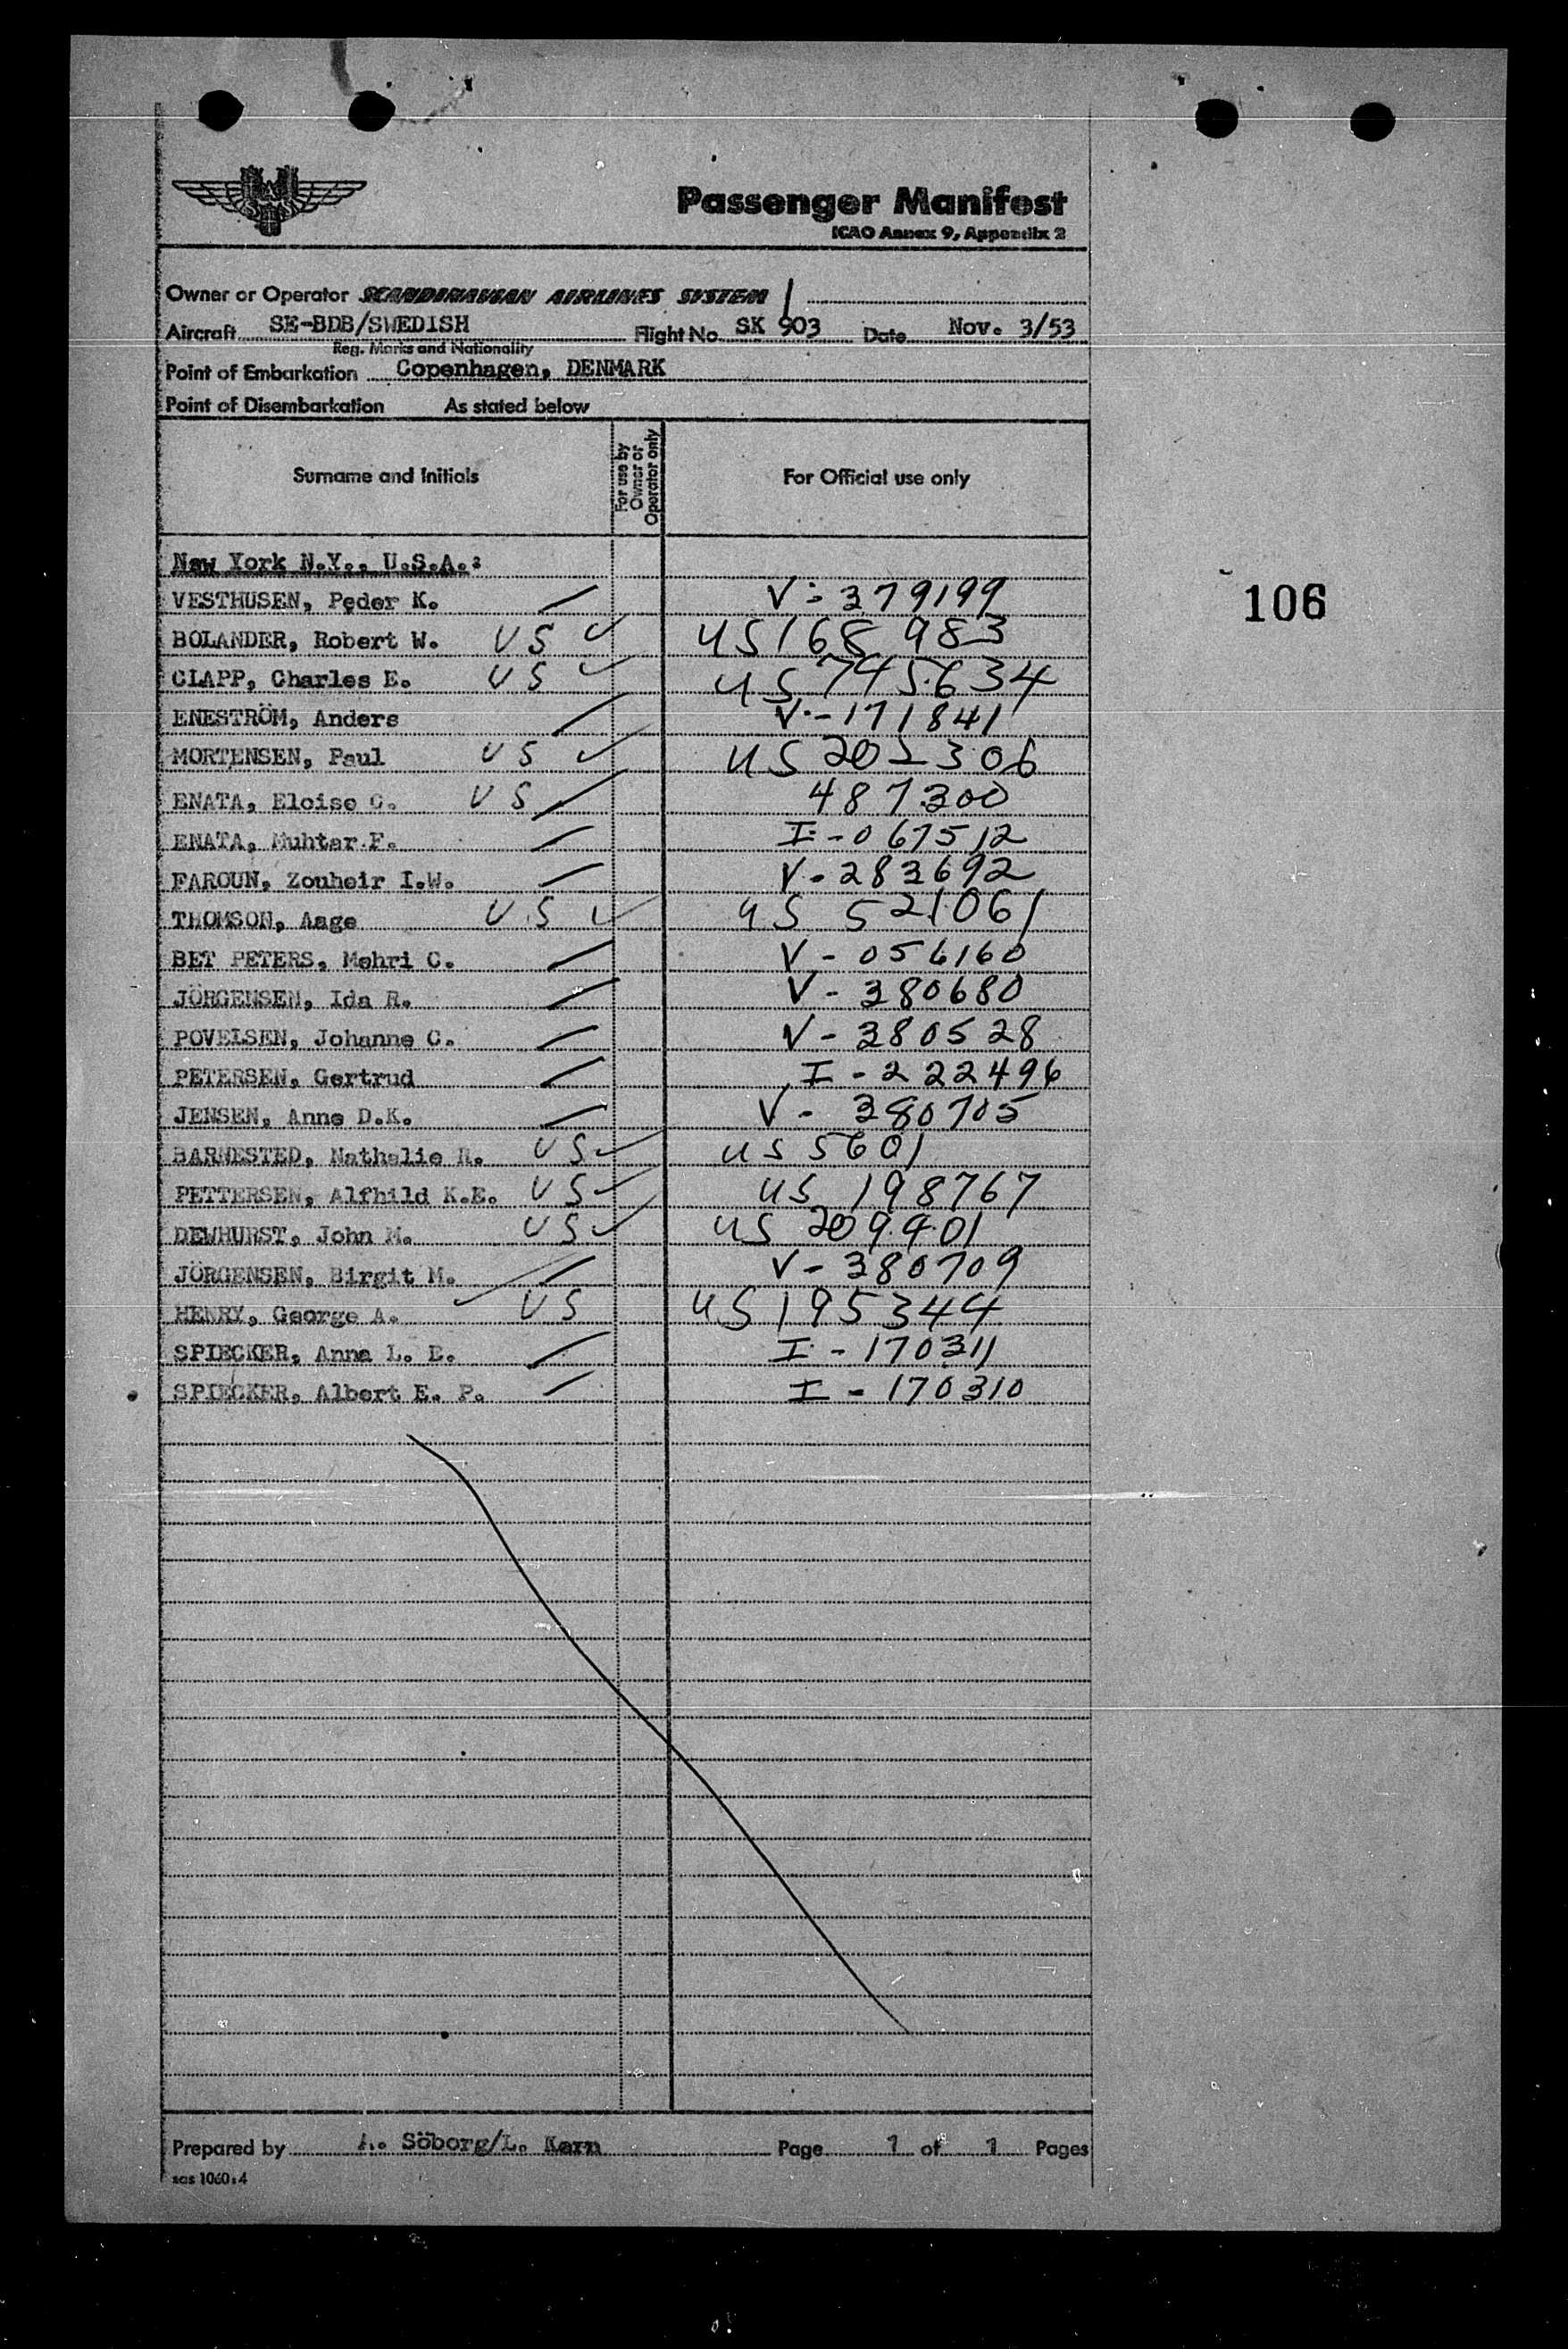 Passenger Manifest
ICAO Annex 9, Appendix 2
Owner or Operator SCANDINAVIAN AIRLINES SYSTEM
Aircraft SE-BDB/SWEDISH Flight No. SK 903 Date Nov. 3/53
Reg. Marks and Nationality
Point of Embarkation Copenhagen, DENMARK
Point of Disembarkation As stated below
Surname and Initials For use by Owner or Operator only For Official use only
New York N.Y., U.S.A.:
VESTHUSEN, Peder K. V-379199
106
BOLANDER, Robert W. US US168983
CLAPP, Charles E. US US745634
ENESTRÖM, Anders V-171841
MORTENSEN, Paul US US 202306
ENATA, Eloise C. US 487300
ENATA, Muhtar F. I-067512
FAROUN, Zouheir I.W. V-283692
THOMSON, Aage US US 521061
BET PETERS, Mehri C. V-056160
JÖRGENSEN, Ida R. V-380680
POVELSEN, Johanne C. V-380528
PETERSEN, Gertrud I-222496
JENSEN, Anne D.K. V-380705
BARNESTED, Nathalie R. US US 5601
PETTERSEN, Alfhild K.E. US US 198767
DEWHURST, John M. US US 209901
JÖRGENSEN, Birgit M. V-380709
HENRY, George A. US US195344
SPIECKER, Anna L. I-170311
SPIECKER, Albert E. P. I-170310
Prepared by A. Söborg/L. Karn Page 1 of 1 Pages
sas 1060:4